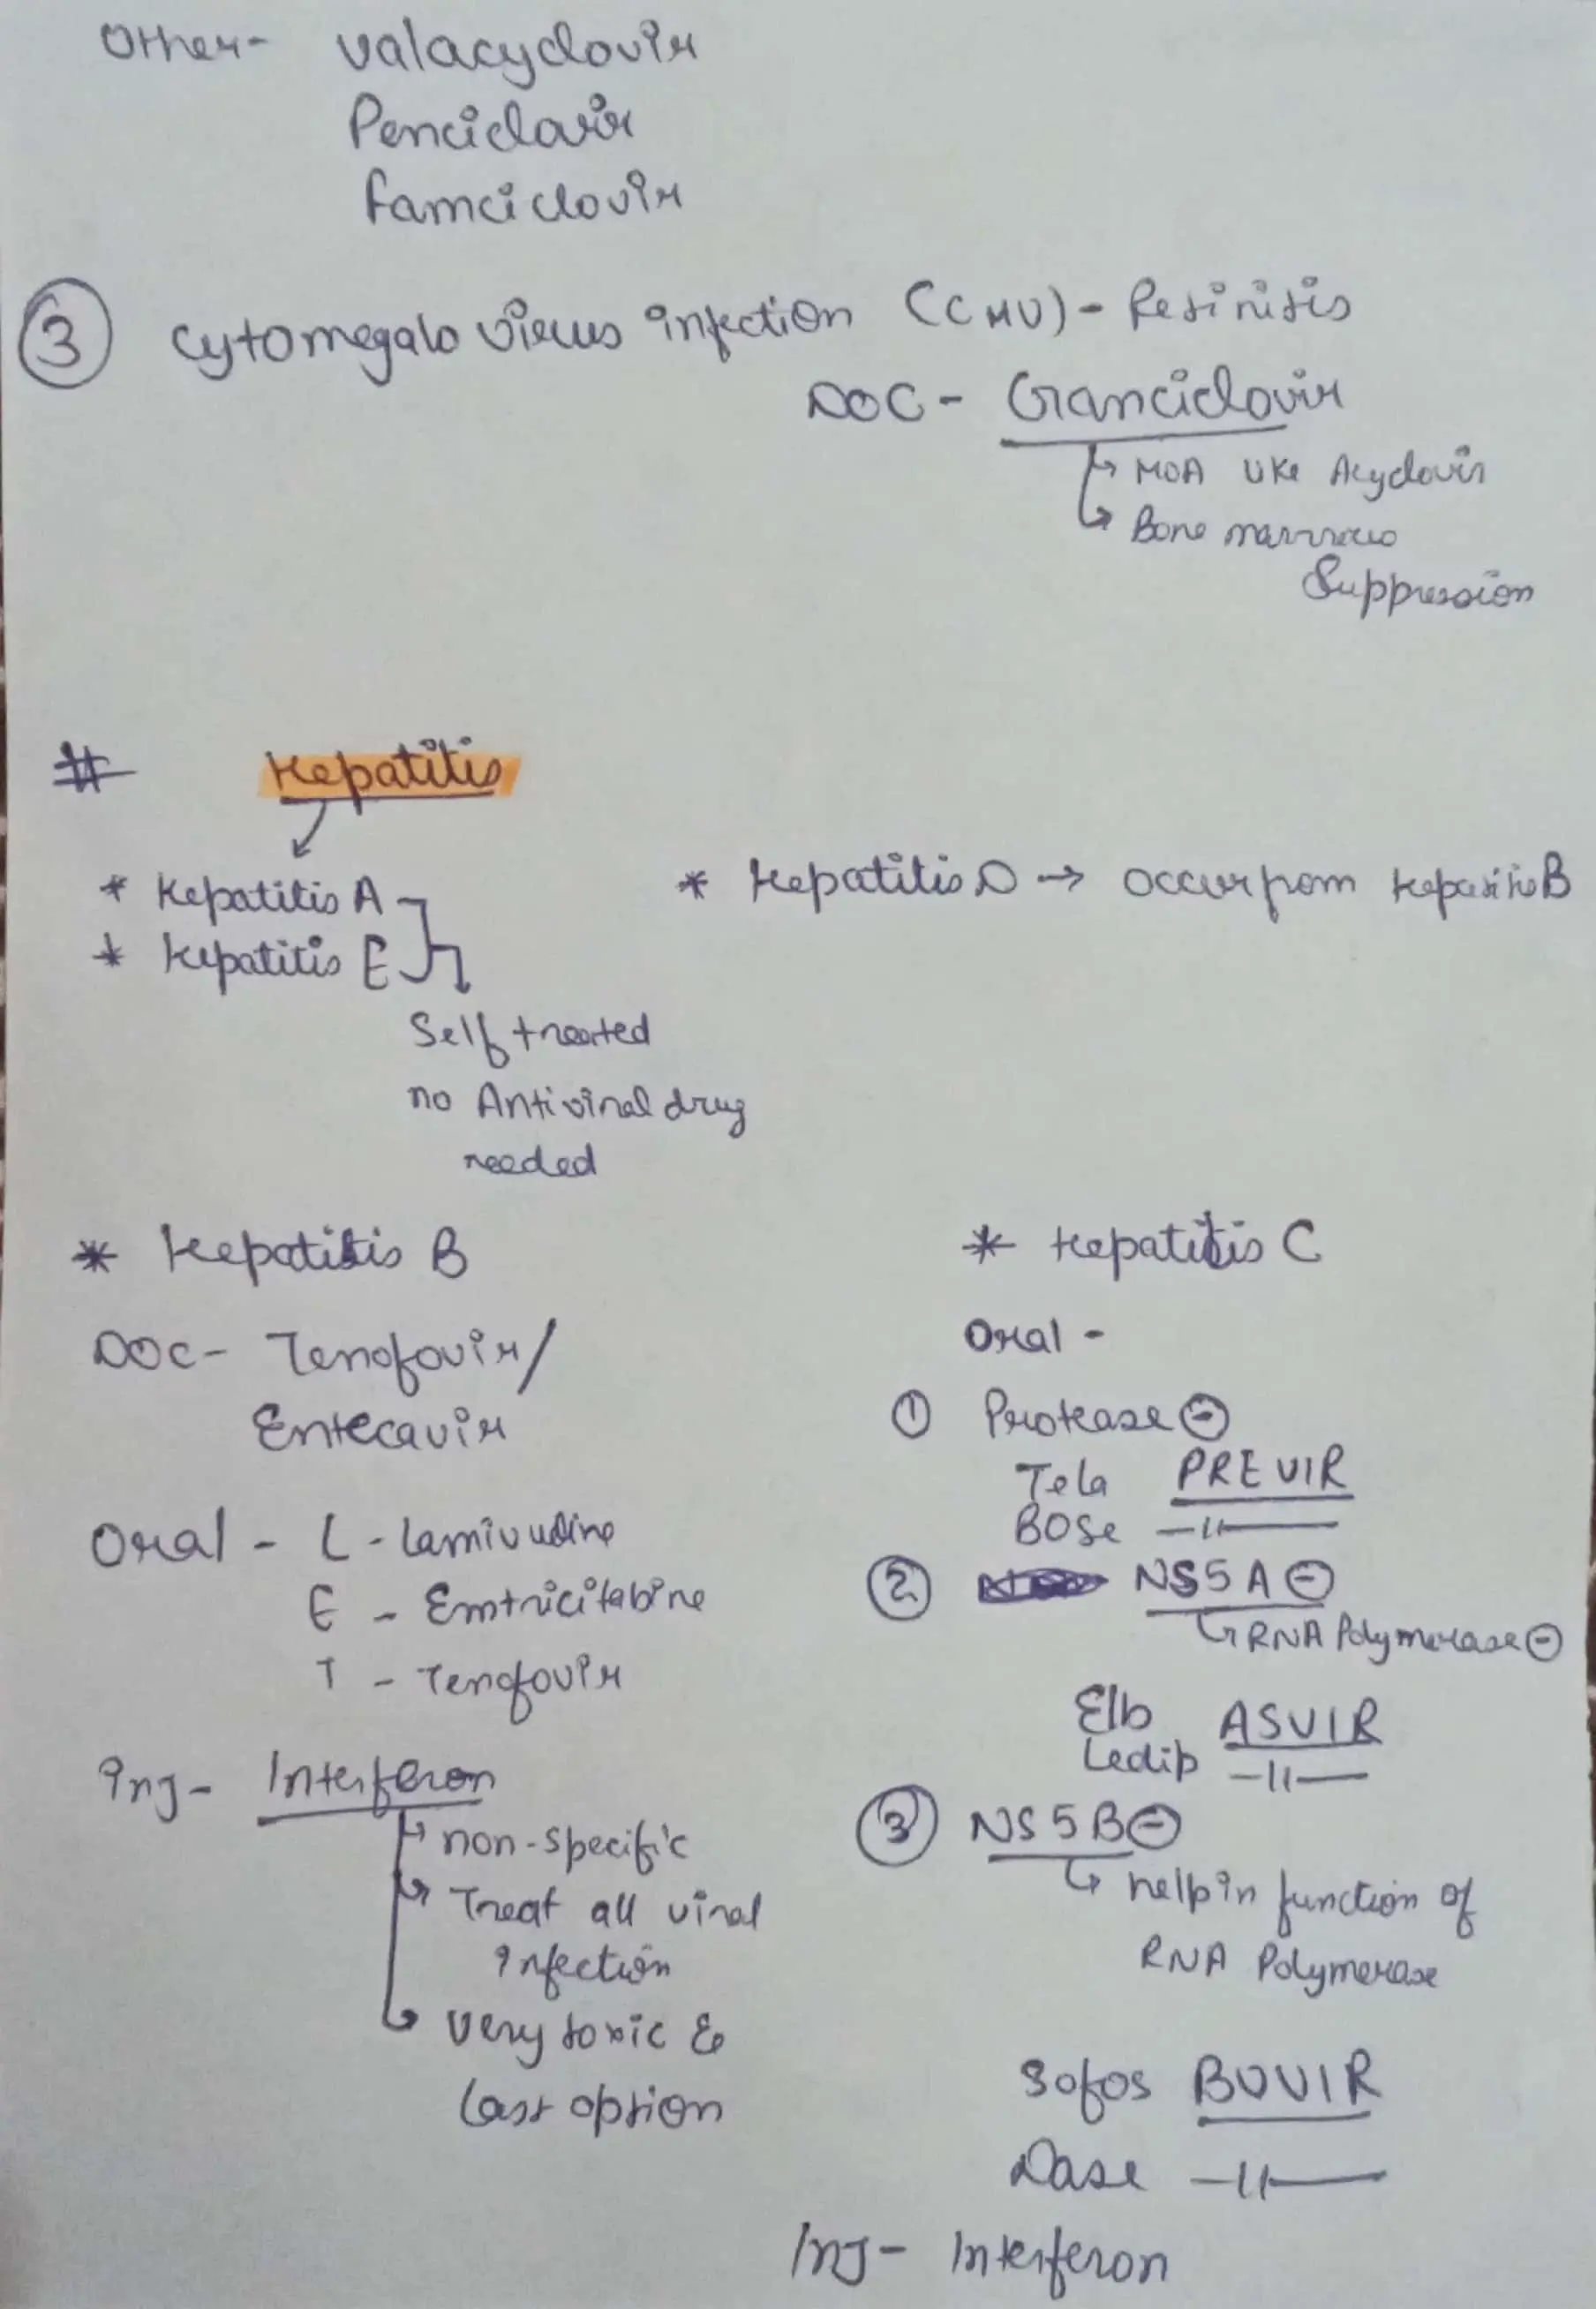 Other- valacyclovir
Penciclovir
famciclovir
③ cytomegalo virus infection (CMV) - Retinitis
DOC - Ganciclovir
↳ MOA like Acyclovir
↳ Bone marrow
Suppression
# Hepatitis
* Hepatitis A
* Hepatitis E
Self treated
no Antiviral drug
needed
* Hepatitis D → occur from Hepatitis B
* Hepatitis B
DOC- Tenofovir/
Entecavir
Oral - L - Lamivudine
E - Emtricitabine
T - Tenofovir
Inj- Interferon
↳ non-specific
↳ Treat all viral
infection
↳ very toxic &
last option
* Hepatitis C
Oral -
① Protease ⊖
Tela PREVIR
BOSe —〃—
② NS5A ⊖
↳ RNA Polymerase ⊖
Elb ASVIR
Ledip —〃—
③ NS5B ⊖
↳ help in function of
RNA Polymerase
Sofos BUVIR
Dase —〃—
Inj- Interferon